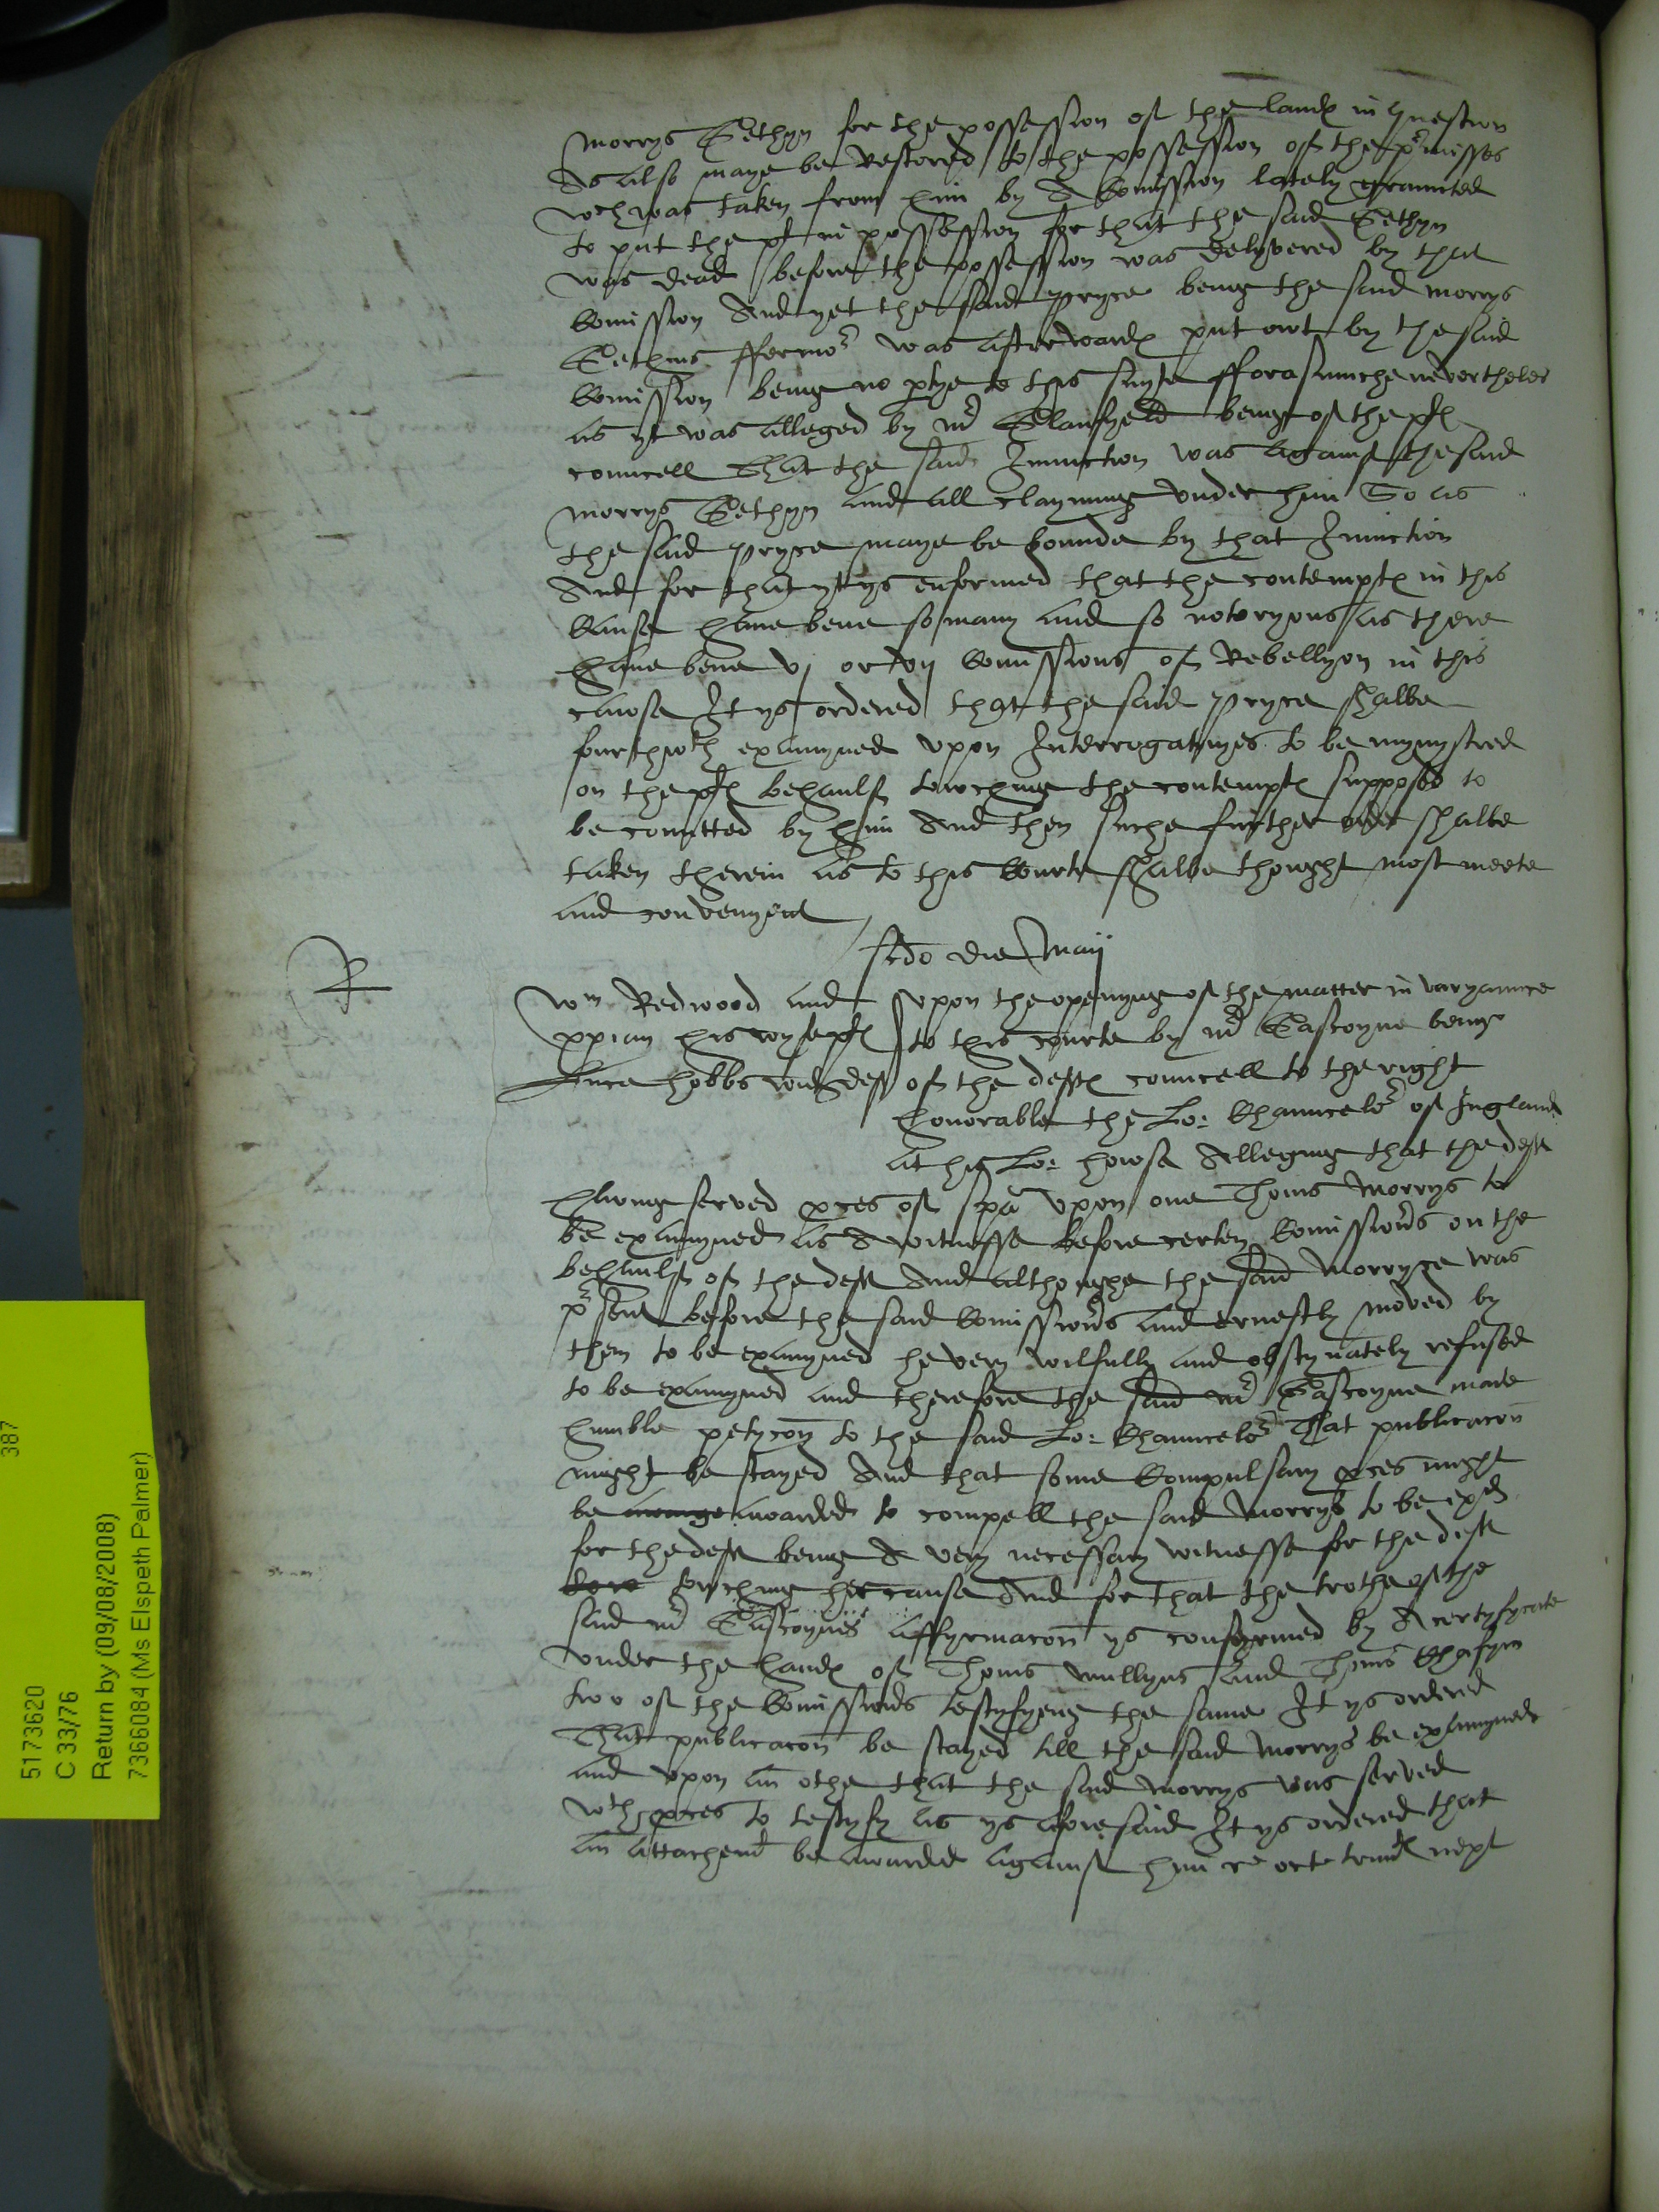 morrys Gethyn for the possession of the land℮ in question
As also maye be Restored to the possession of the pʳmisses
wch was taken from him by A Comission lately graunted
to put the pl in possession for that the said Gethyn
was dead before the possession was delyvered by that
Comission And yet the said Pryce being the said morrys
Gethins ffermoʳ was afterward℮ put owt by the said
Comission being no ptye to this suyte fforasmuche nevertheles
as yt was alleged by mʳ Glanfyeld being of the pl℮
councell That the said Iniunction was against the said
morrys Gethyn and all clayming vnder him So as
the said pryce maye be bounde by that Iniunction
And for that yt ys enformed that the contempt℮ in this
Cause haue bene so many and so notoryous as there
haue bene vj or vij Comissions of Rebellyon in this
cause It ys ordered that the said pryce shalbe
fourthwth examyned vpon Interrogatoryes to be mynystred
on the pl℮ behaulf towching the contempt℮ supposed to
be comitted by him And then suche further order shalbe
taken therein as to this Courte shalbe thought most meete
and convenyent
scdo die Maij
R
Wm Redwood and
xpian his wyfe pl℮
Luce hobbs wid deft
vpon the openyng of the matter in varyaunce
to this courte by mʳ Gascoyne being
of the deft℮ councell to the right
honorable the Lo: Chaunceloʳ of England
at his Lo: howse Alleging that the deft
having served pces of spa vpon one Thoms Morrys to
be examyned as A witnesse before certen Comissionʳs on the
behaulf of the deft And althoughe the said Morryce was
pʳsent before the said Comissionʳs and ernestly moved by
them to be examyned he very wilfully and obstynately refused
to be examyned and therefore the said mʳ Gascoyne made
humble petycon to the said Lo: Chaunceloʳ That publicacon
might be stayed And that some Compulsary pces might
be awarded to compell the said Morrys to be exed
for the deft being A very necessary witnesse for the deft
towching her cause And for that the trothe of the
said mʳ Gascoynes affyrmacon ys confyrmed by A certyfycate
vnder the hand℮ of Thoms mullyns and Thoms Chafyn
two of the Comissionʳs testyfyeng the same It ys ordered
That publicacon be stayed till the said Morrys be examyned
and vpon an othe that the said morrys was served
wth pces to testyfy as ys aforesaid It ys ordered that
an attachemt be awarded against him re oct trin℮ next
387
5173620
C 33/76
Return by (09/08/2008)
7366084 (Ms Elspeth Palmer)